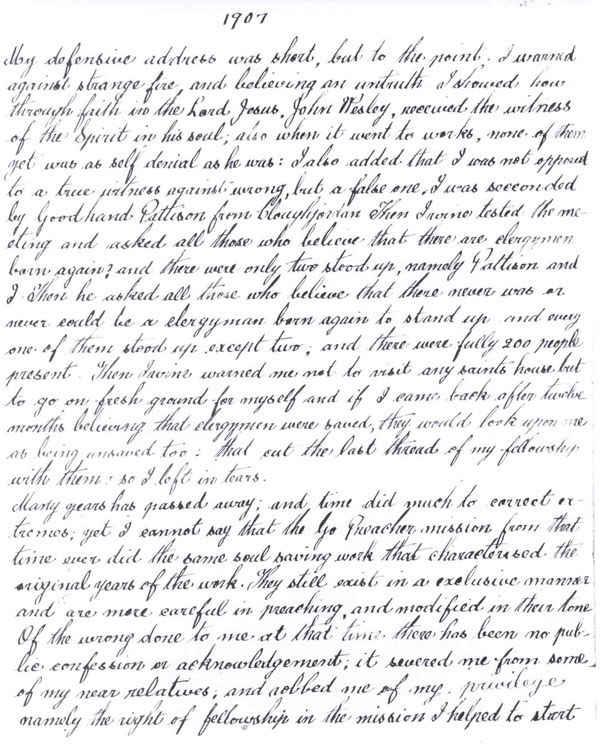 1907
My defensive address was short, but to the point. I warned
against strange fire, and believing an untruth I showed how
through faith in the Lord Jesus, John Wesley, received the witness
of the Spirit in his soul; also when it went to works, none of them
yet was as self denial as he was: I also added that I was not opposed
to a true witness against wrong, but a false one. I was secconded
by Goodhand Pattison from Cloughjordan Then Irvine tested the me-
eting and asked all those who believe that there are clergymen
born again? and there were only two stood up, namely Pattison and
I. Then he asked all those who believe that there never was or
never could be a clergyman born again to stand up and every
one of them stood up except two; and there were fully 200 people
present. Then Irvine warned me not to visit any saints house but
to go on fresh ground for myself and if I came back after twelve
months believing that clergymen were saved, they would look upon me
as being unsaved too: that cut the last thread of my fellowship
with them: so I left in tears.
Many years has passed away; and time did much to correct ex-
tremes; yet I cannot say that the Go Preacher mission from that
time ever did the same soul saving work that characterised the
original years of the work. They still exist in a exclusive manner
and are more careful in preaching, and modified in their tone
Of the wrong done to me at that time there has been no pub-
lic confession or acknowledgement; it severed me from some
of my near relatives; and robbed me of my privilege
namely the right of fellowship in the mission I helped to start